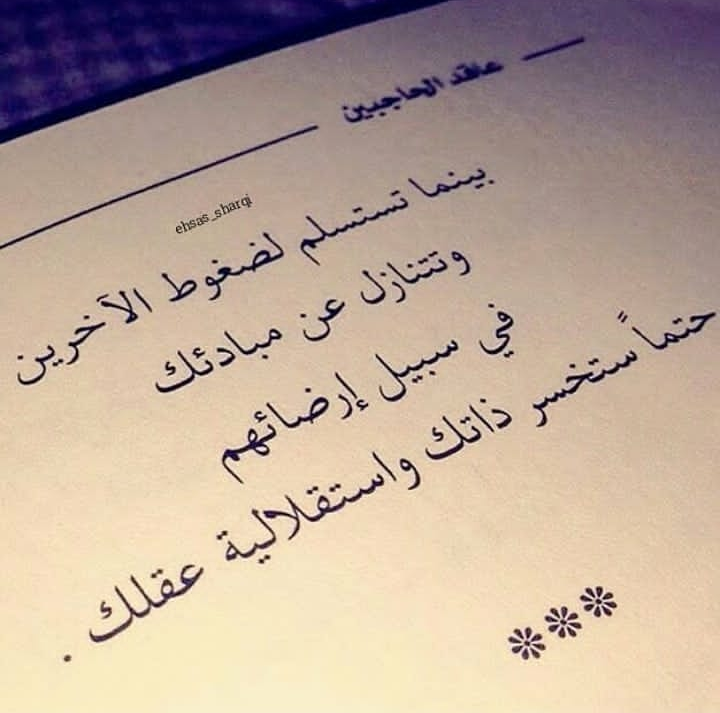 عاقد الحاجبين
ehsas_sharqi
بينما تستسلم لضغوط الآخرين
وتتنازل عن مبادئك
في سبيل إرضائهم
حتماً ستخسر ذاتك واستقلالية عقلك .